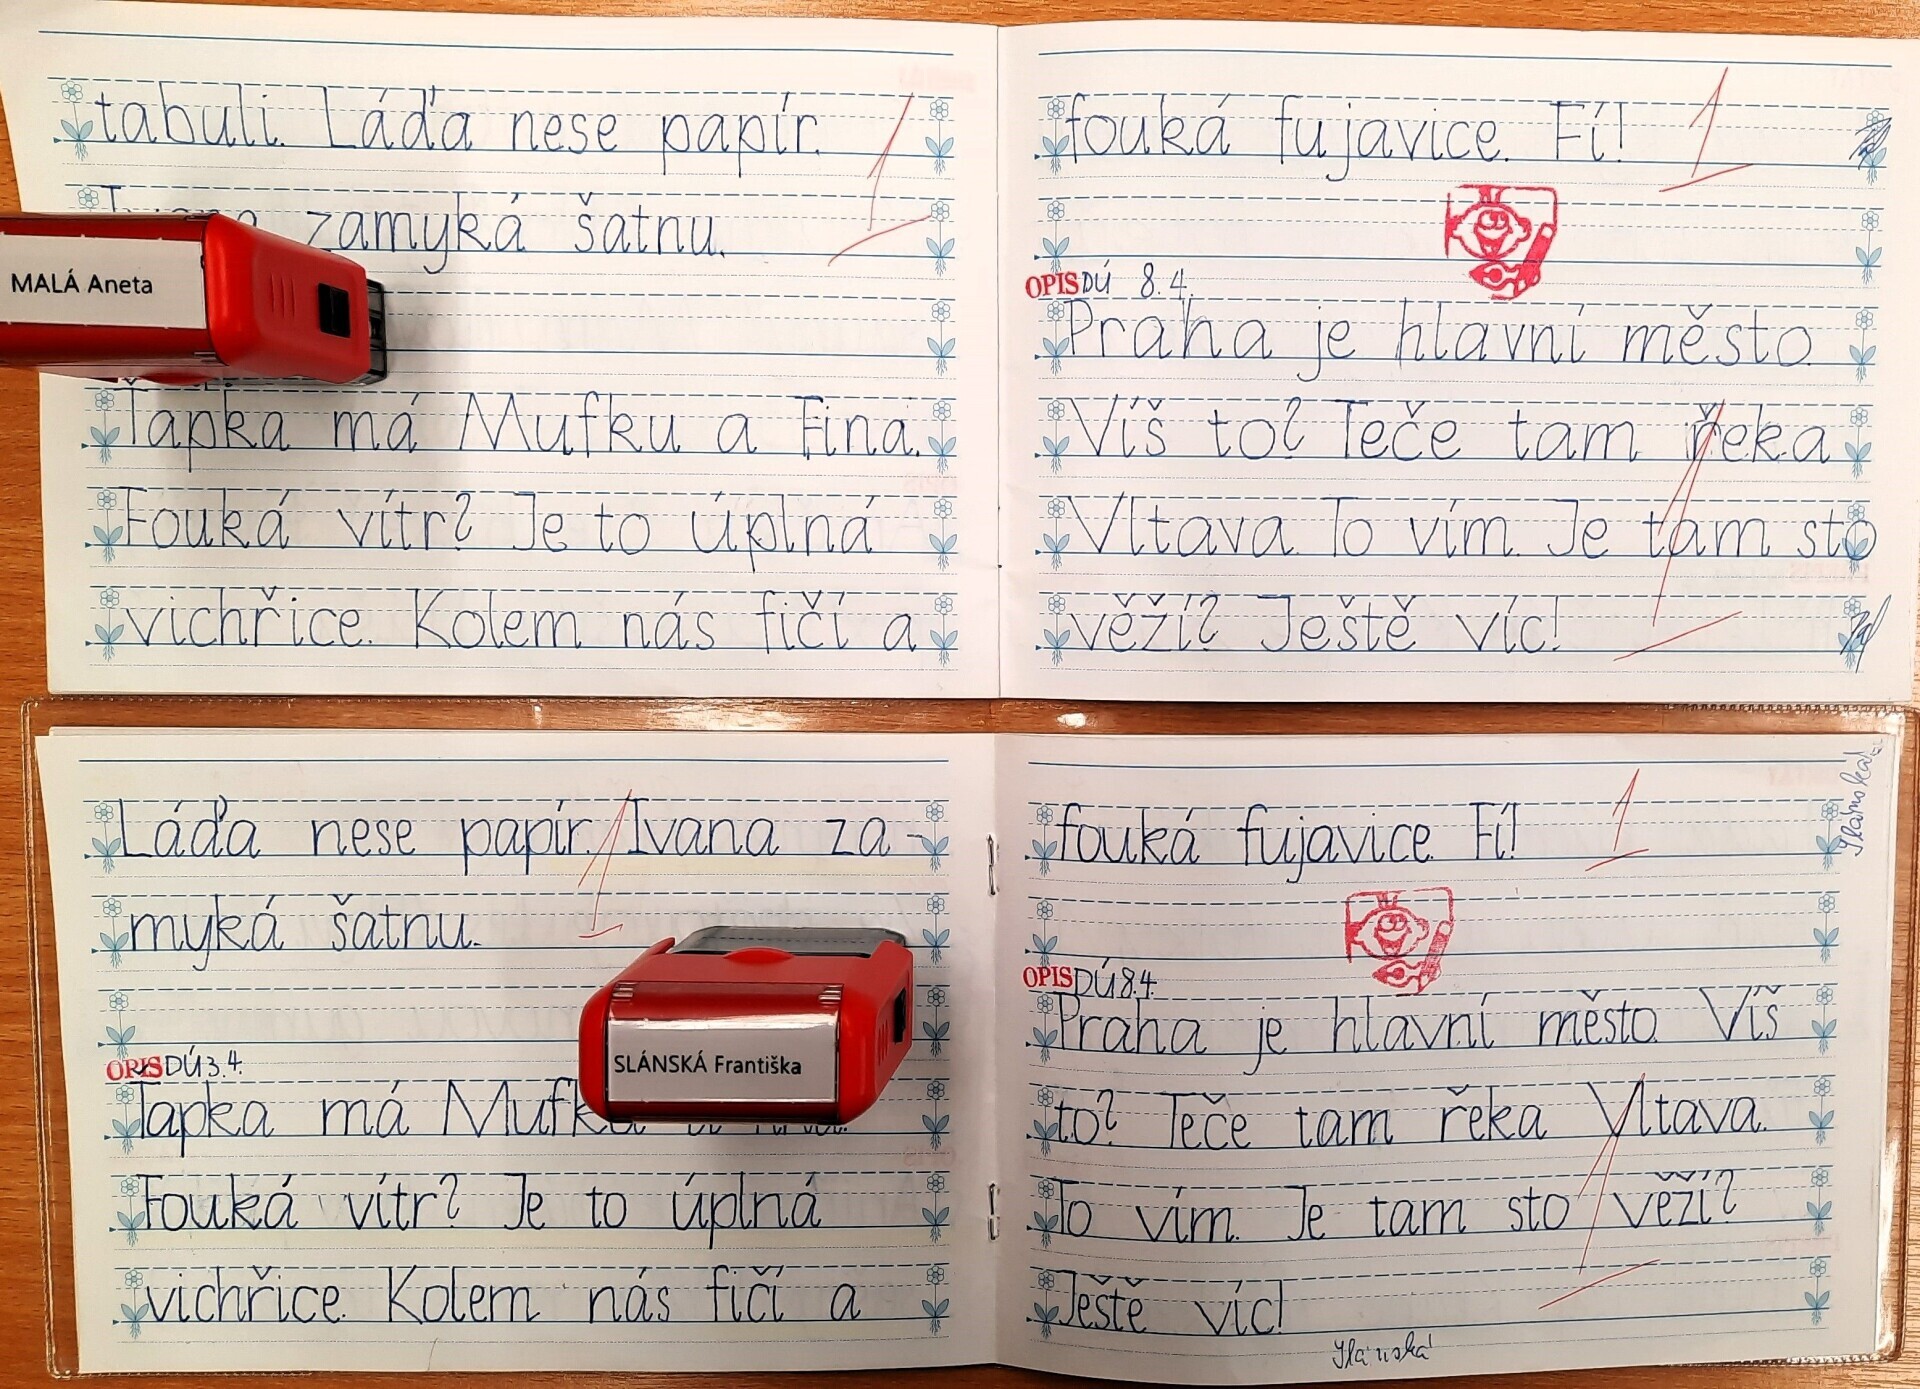 tabuli. Láďa nese papír. 1
zamyká šatnu.
MALÁ Aneta
Ťapka má Mufku a Fína.
Fouká vítr? Je to úplná
vichřice. Kolem nás fičí a
fouká fujavice. Fí! 1
OPIS DÚ 8. 4.
Praha je hlavní město.
Víš to? Teče tam řeka
Vltava. To vím. Je tam sto
věží? Ještě víc! 1
Láďa nese papír. Ivana za-
myká šatnu. 1
OPIS DÚ 3. 4.
SLÁNSKÁ Františka
Ťapka má
Fouká vítr? Je to úplná
vichřice. Kolem nás fičí a
Slánská
fouká fujavice. Fí! 1
OPIS DÚ 8. 4.
Praha je hlavní město. Víš
to? Teče tam řeka Vltava.
To vím. Je tam sto věží?
Ještě víc! 1
Slánská